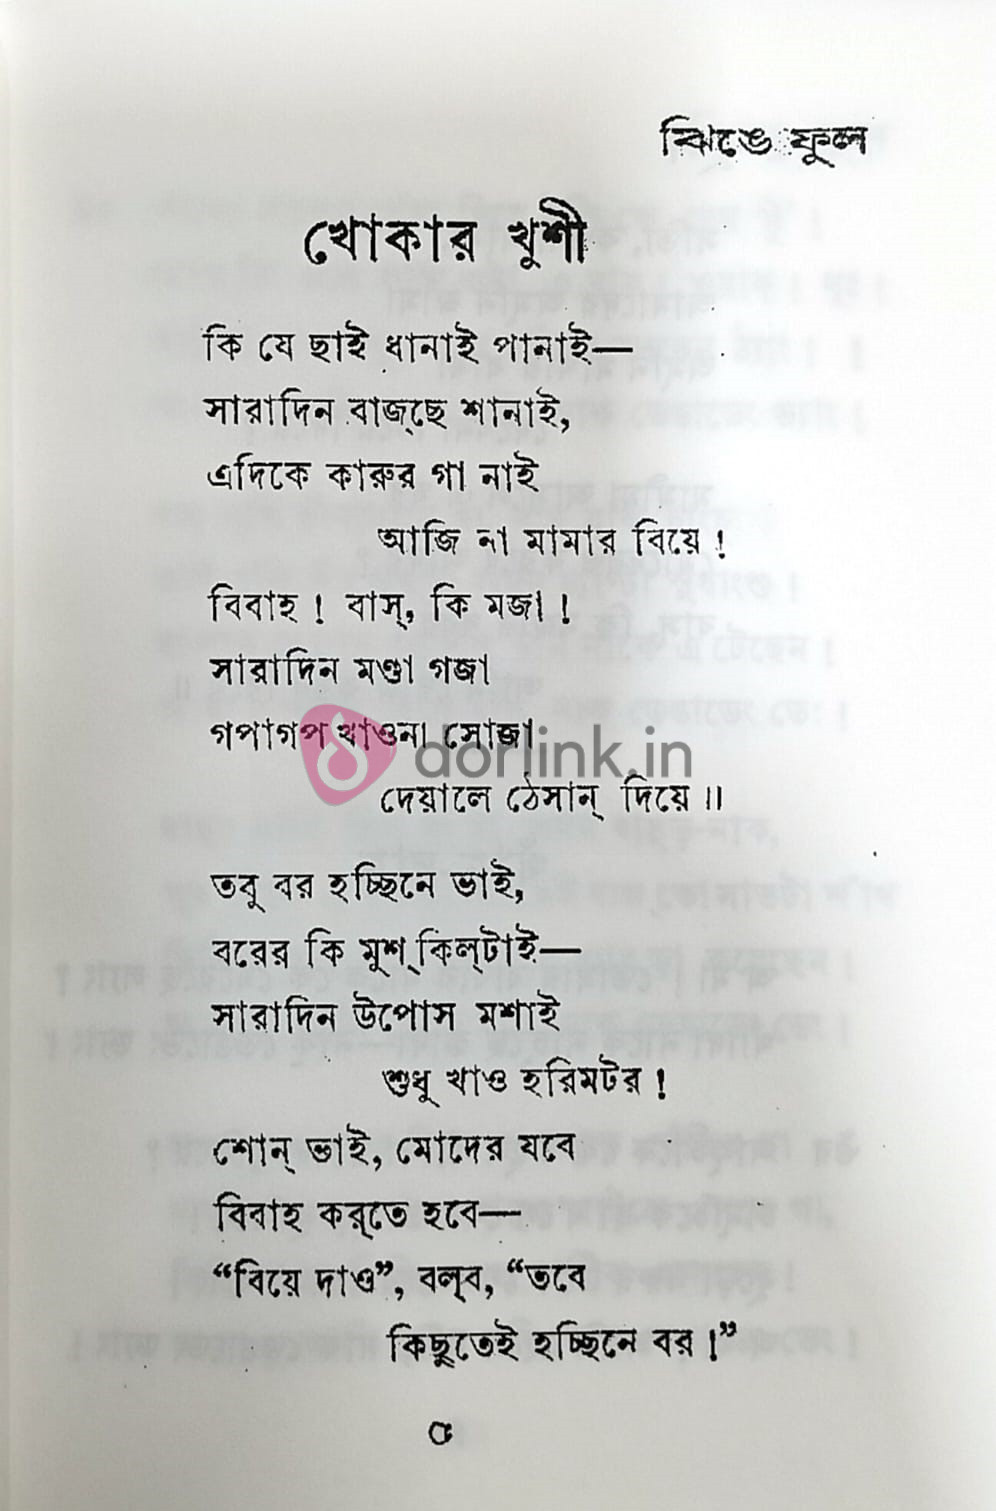 ঝিঙে ফুল
খোকার খুশী
কি যে ছাই ধানাই পানাই—
সারাদিন বাজ্‌ছে শানাই,
এদিকে কারুর গা নাই
আজি না মামার বিয়ে !
বিবাহ ! বাস্, কি মজা !
সারাদিন মণ্ডা গজা
গপাগপ খাওনা সোজা
dorlink.in
দেয়ালে ঠেসান্ দিয়ে ॥
তবু বর হচ্ছিনে ভাই,
বরের কি মুশ্‌কিল্‌টাই—
সারাদিন উপোস মশাই
শুধু খাও হরিমটর !
শোন্ ভাই, মোদের যবে
বিবাহ কর্‌তে হবে—
“বিয়ে দাও”, বল্‌ব, “তবে
কিছুতেই হচ্ছিনে বর !”
৫